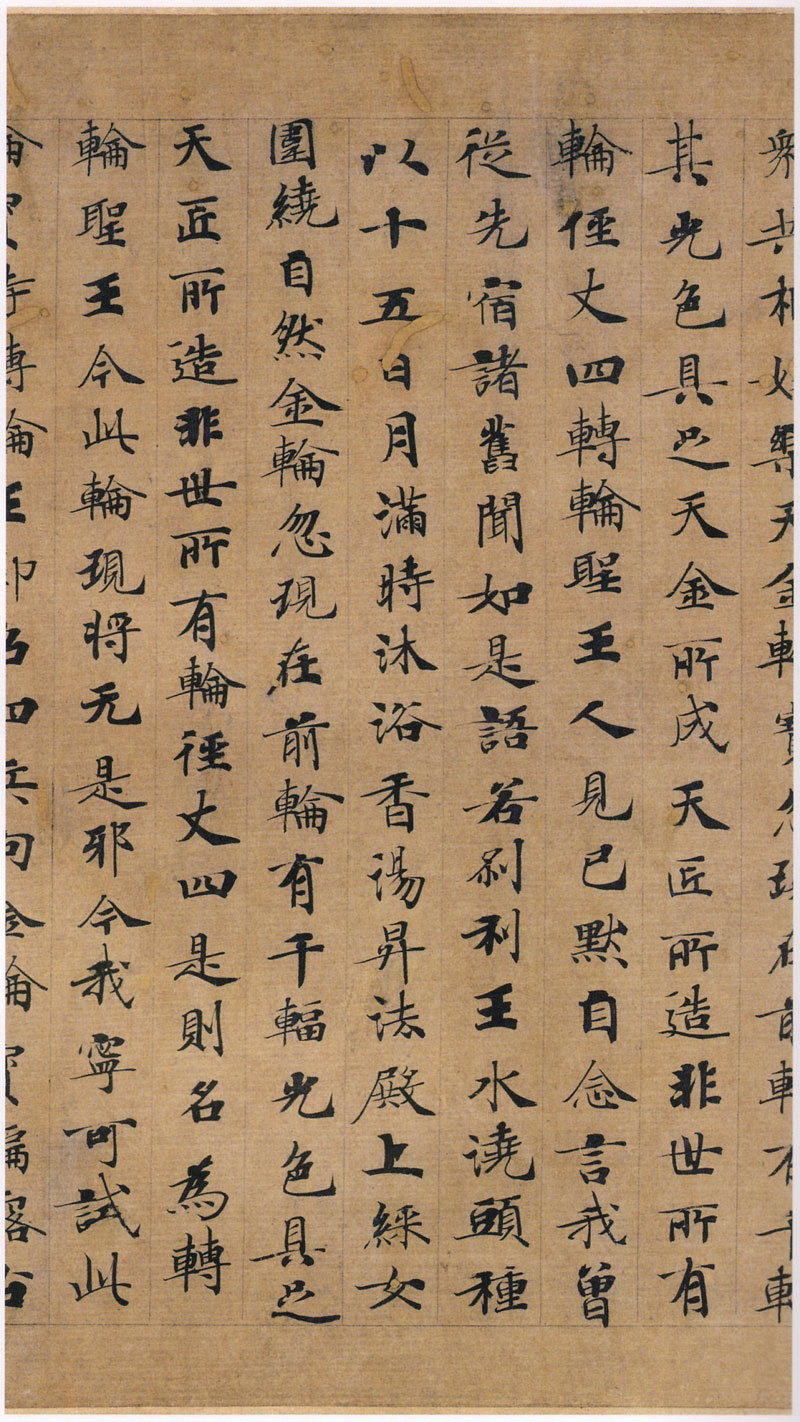 衆共相天金輪寶忽現在前輪有千輻
其光色具足天金所成天匠所造非世所有
輪徑丈四轉輪聖王人見已默自念言我曾
從先宿諸舊聞如是語若刹利王水澆頭種
以十五日月滿時沐浴香湯昇法殿上綵女
圍繞自然金輪忽現在前輪有千輻光色具足
天匠所造非世所有輪徑丈四是則名為轉
輪聖王今此輪現將无是邪今我寧可試此
輪寶時轉輪王即召四兵向金輪寶偏露右